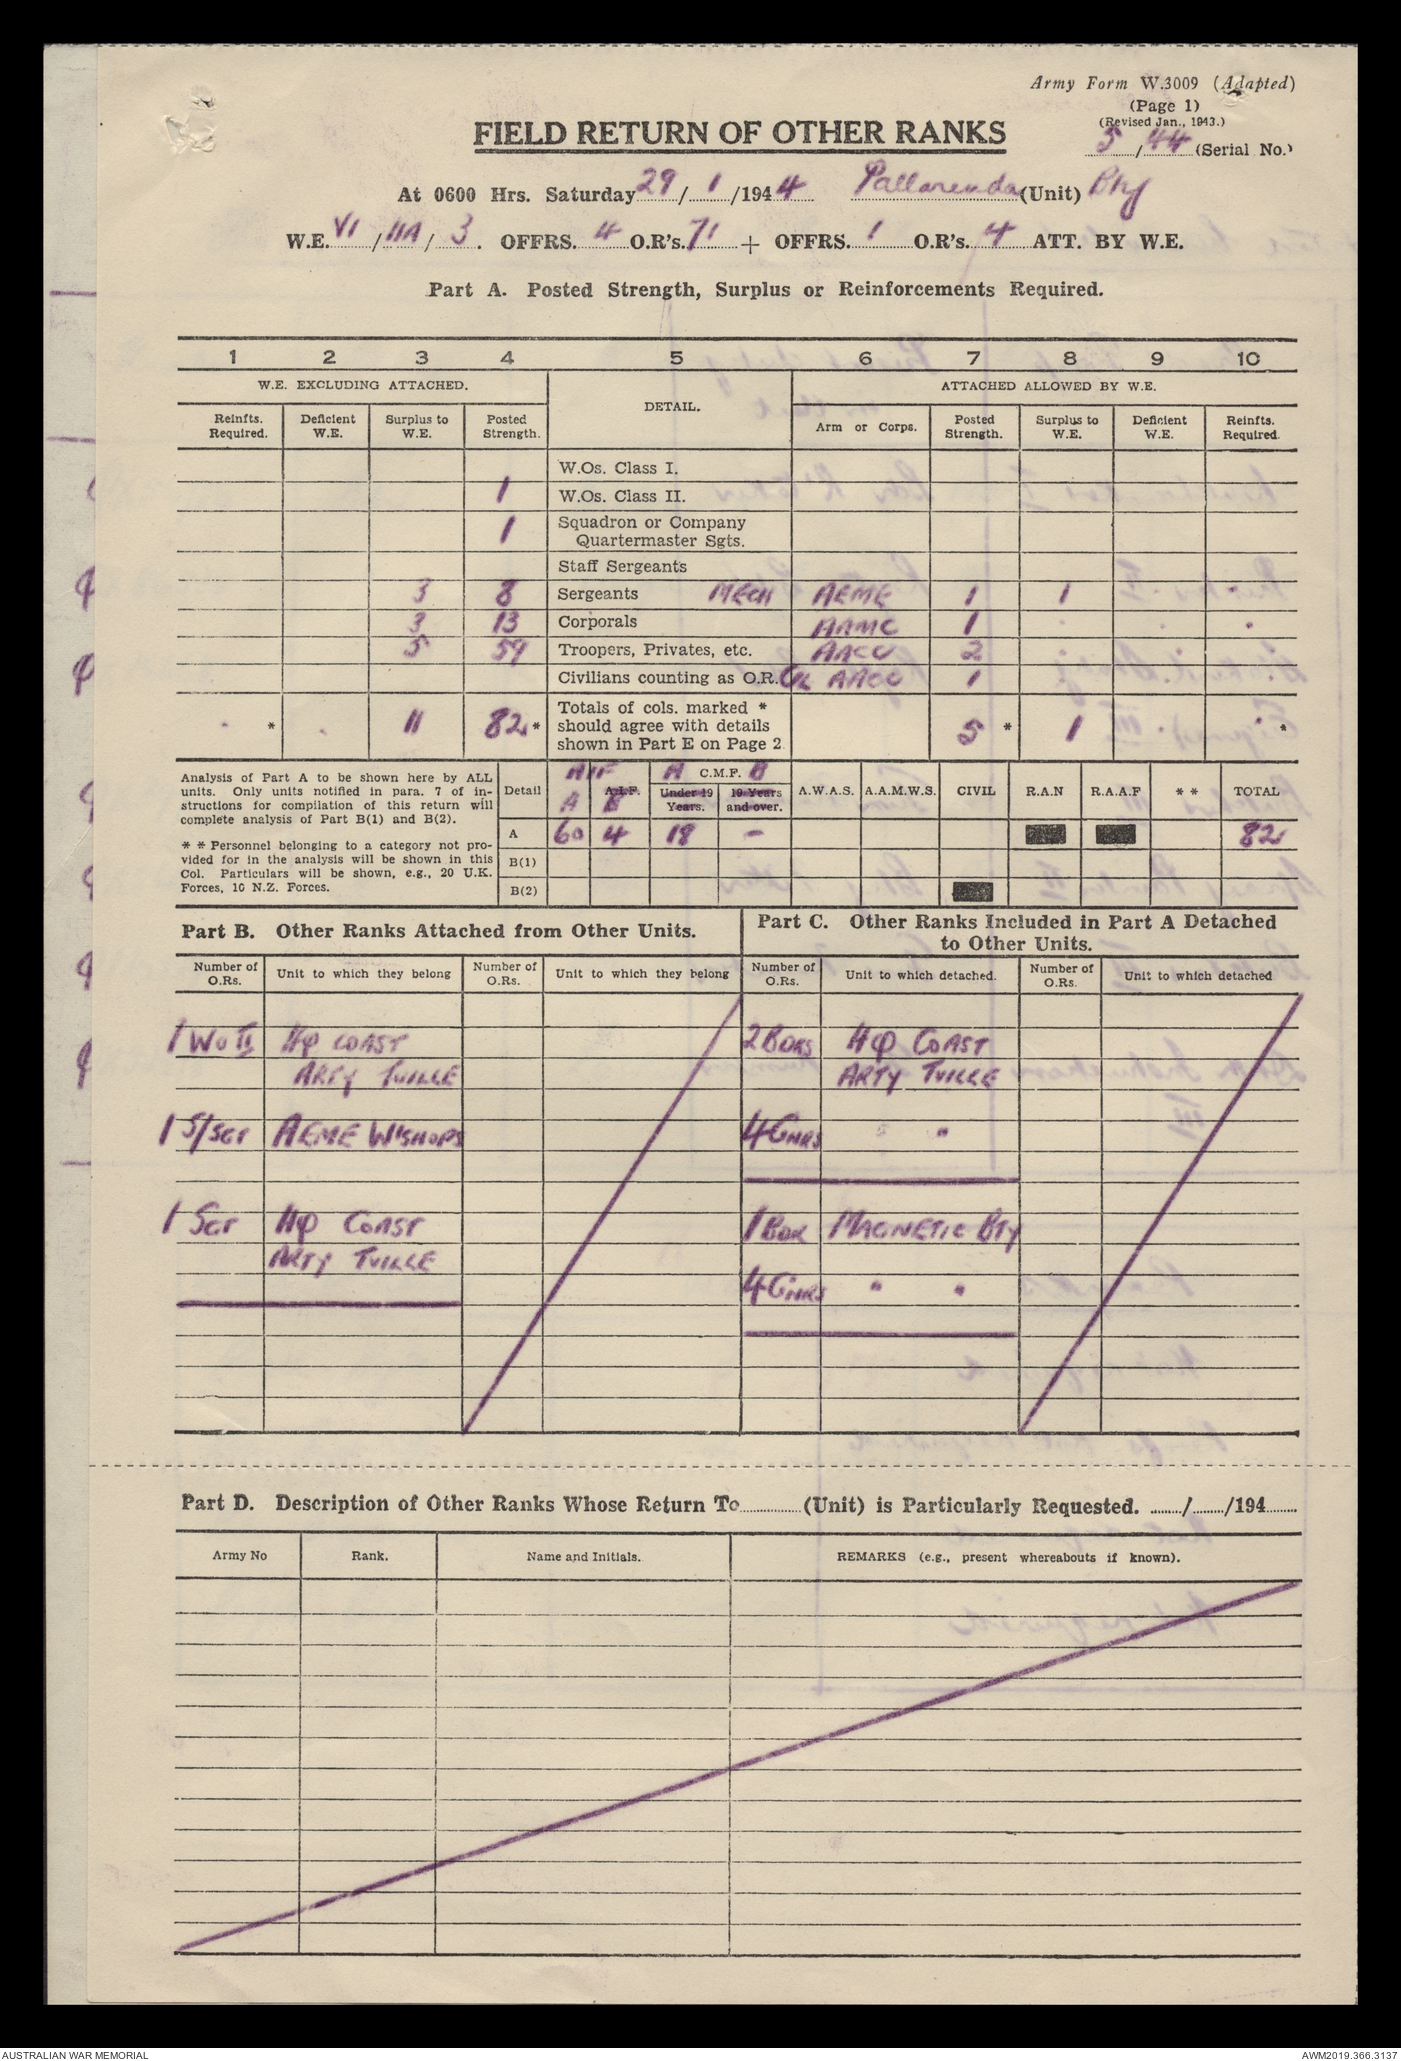 Army Form W.3009 (Adapted)
(Page 1)
(Revised Jan., 1943.)
FIELD RETURN OF OTHER RANKS
5/44 (Serial No.)
At 0600 Hrs. Saturday 29/1/1944 Pallarenda (Unit) Bty
W.E. VI/11A/3. OFFRS. 4 O.R's. 71 + OFFRS. 1 O.R's. 4 ATT. BY W.E.
Part A. Posted Strength, Surplus or Reinforcements Required.
1 2 3 4 5 6 7 8 9 10
W.E. EXCLUDING ATTACHED. DETAIL. ATTACHED ALLOWED BY W.E.
Reinfts. Required. Deficient W.E. Surplus to W.E. Posted Strength. Arm or Corps. Posted Strength. Surplus to W.E. Deficient W.E. Reinfts. Required.
W.Os. Class I.
1 W.Os. Class II.
1 Squadron or Company Quartermaster Sgts.
Staff Sergeants
3 8 Sergeants MECH AEME 1 1
3 13 Corporals AAMC 1
5 59 Troopers, Privates, etc. AACC 2
Civilians counting as O.R. AACC 1
* 11 82 * Totals of cols. marked * should agree with details shown in Part E on Page 2 5 * 1 *
Analysis of Part A to be shown here by ALL
units. Only units notified in para. 7 of in-
structions for compilation of this return will
complete analysis of Part B(1) and B(2).
* * Personnel belonging to a category not pro-
vided for in the analysis will be shown in this
Col. Particulars will be shown, e.g., 20 U.K.
Forces, 10 N.Z. Forces.
Detail AIF A B A.I.F. A C.M.F. B Under 19 Years. 19 Years and over. A.W.A.S. A.A.M.W.S. CIVIL R.A.N R.A.A.F * * TOTAL
A 60 4 18 - 82
B(1)
B(2)
Part B. Other Ranks Attached from Other Units.
Number of O.Rs. Unit to which they belong Number of O.Rs. Unit to which they belong
1 WO II HQ COAST
ARTY TVILLE
1 S/SGT AEME W'SHOPS
1 SGT HQ COAST
ARTY TVILLE
Part C. Other Ranks Included in Part A Detached
to Other Units.
Number of O.Rs. Unit to which detached. Number of O.Rs. Unit to which detached
2 BDRS HQ COAST
ARTY TVILLE
4 GNRS " "
1 BDR MAGNETIC BTY
4 GNRS " "
Part D. Description of Other Ranks Whose Return To (Unit) is Particularly Requested. / /194
Army No Rank. Name and Initials. REMARKS (e.g., present whereabouts if known).
AUSTRALIAN WAR MEMORIAL AWM2019.366.3137